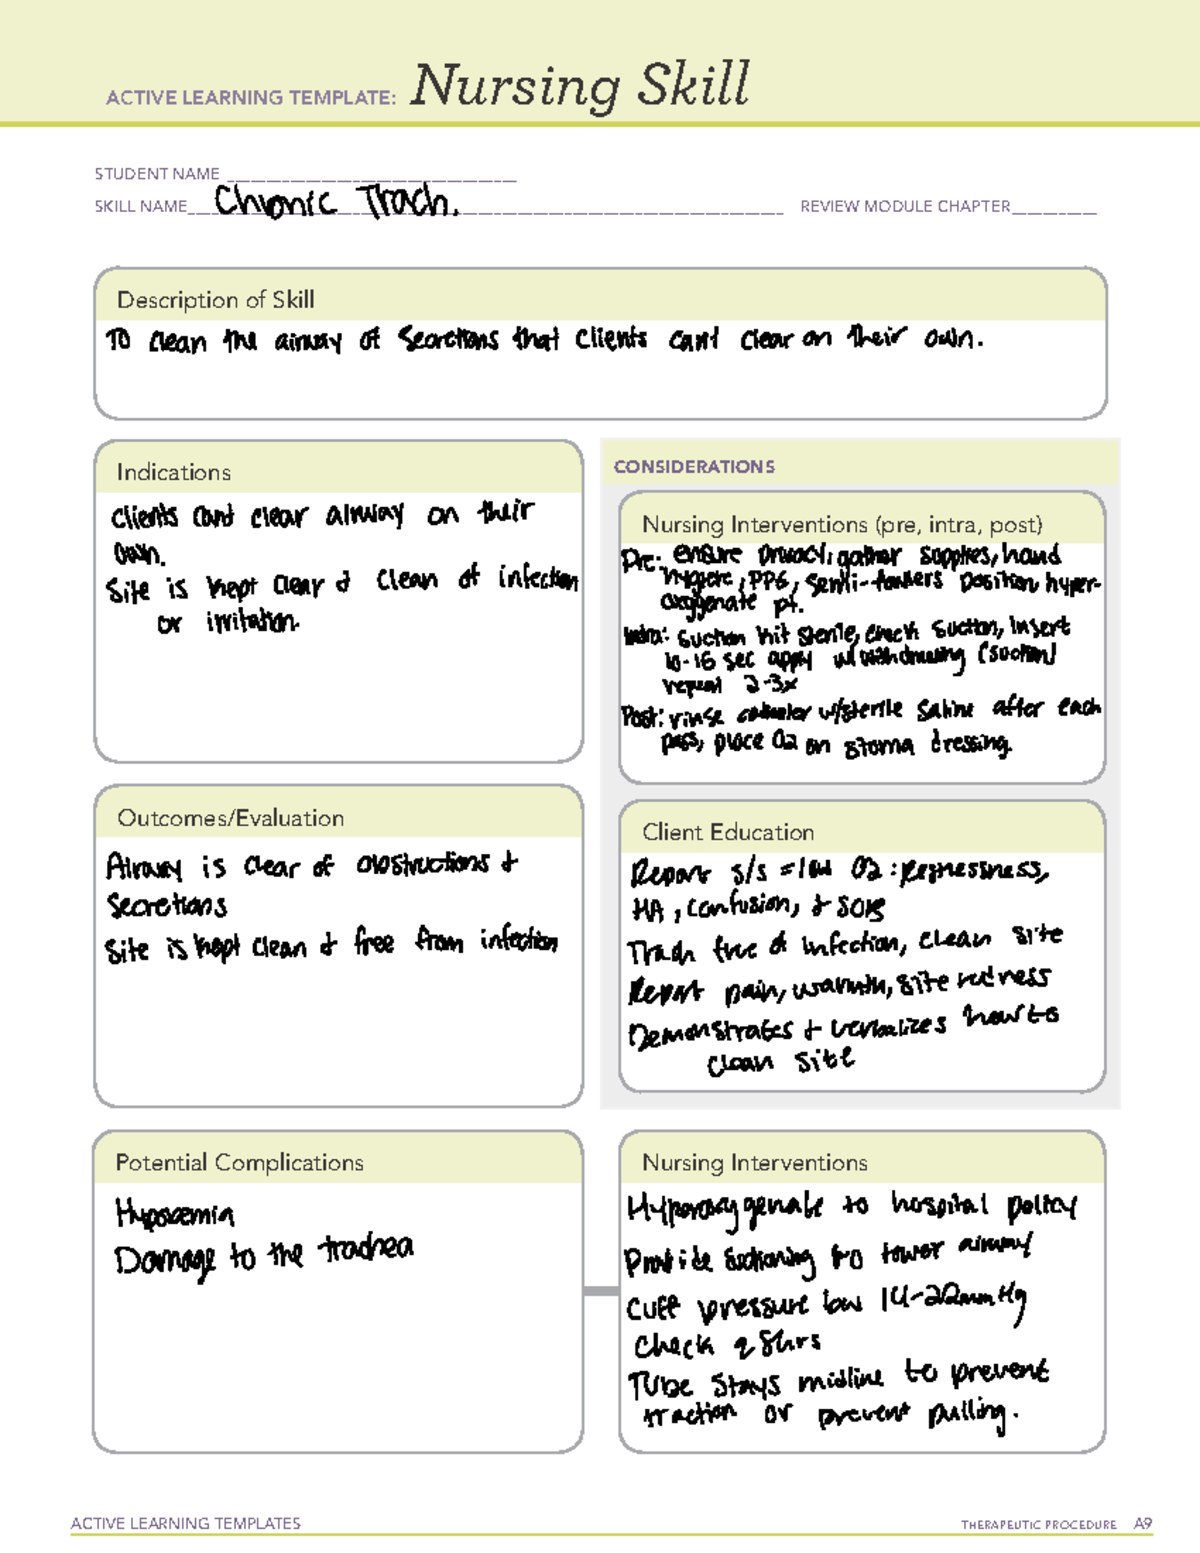 ACTIVE LEARNING TEMPLATE: Nursing Skill
STUDENT NAME
SKILL NAME Chronic Trach. REVIEW MODULE CHAPTER
Description of Skill
To clean the airway of Secretions that clients can't clear on their own.
Indications
Clients cant clear airway on their
own.
Site is kept clear & clean of infection
or irritation.
CONSIDERATIONS
Nursing Interventions (pre, intra, post)
Pre: ensure privacy, gather supplies, hand
hygiene, PPE, Semi-fowlers position hyper-
oxygenate pt.
Intra: Suction kit sterile, check suction, insert
10-15 sec apply w/ withdrawing (suction)
repeat 2-3x
Post: rinse catheter w/sterile Saline after each
pass, place O2 on stoma dressing.
Outcomes/Evaluation
Airway is clear of obstructions &
Secretions
Site is kept clean & free from infection
Client Education
Report s/s = low O2: restlessness,
HA, confusion, & SOB
Trach free of infection, clean site
Report pain, warmth, site redness
Demonstrates & verbalizes how to
clean site
Potential Complications
Hypoxemia
Damage to the trachea
Nursing Interventions
Hyperoxygenate to hospital policy
Provide Suctioning to lower airway
Cuff pressure low 14-22mmHg
Check q 8hrs
Tube stays midline to prevent
traction or prevent pulling.
ACTIVE LEARNING TEMPLATES THERAPEUTIC PROCEDURE A9